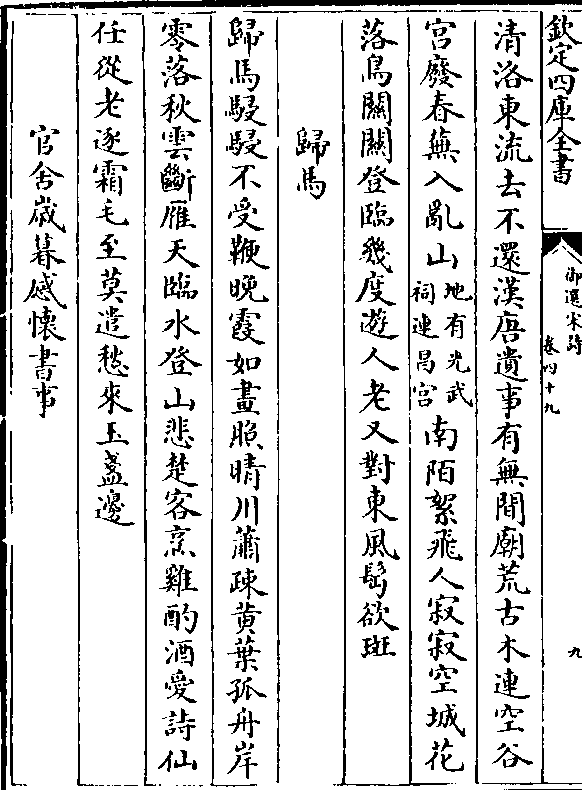 欽定四庫全書
御選宋詩
卷四十九
九
清洛東流去不還漢唐遺事有無間廟荒古木連空谷
宮廢春蕪入亂山地有光武祠連昌宮南陌絮飛人寂寂空城花
落鳥關關登臨幾度遊人老又對東風鬢欲斑
歸馬
歸馬駸駸不受鞭晚霞如畫照晴川蕭疎黃葉孤舟岸
零落秋雲斷雁天臨水登山悲楚客烹雞酌酒愛詩仙
任從老逐霜毛至莫遣愁來玉盞邊
官舍歲暮感懷書事